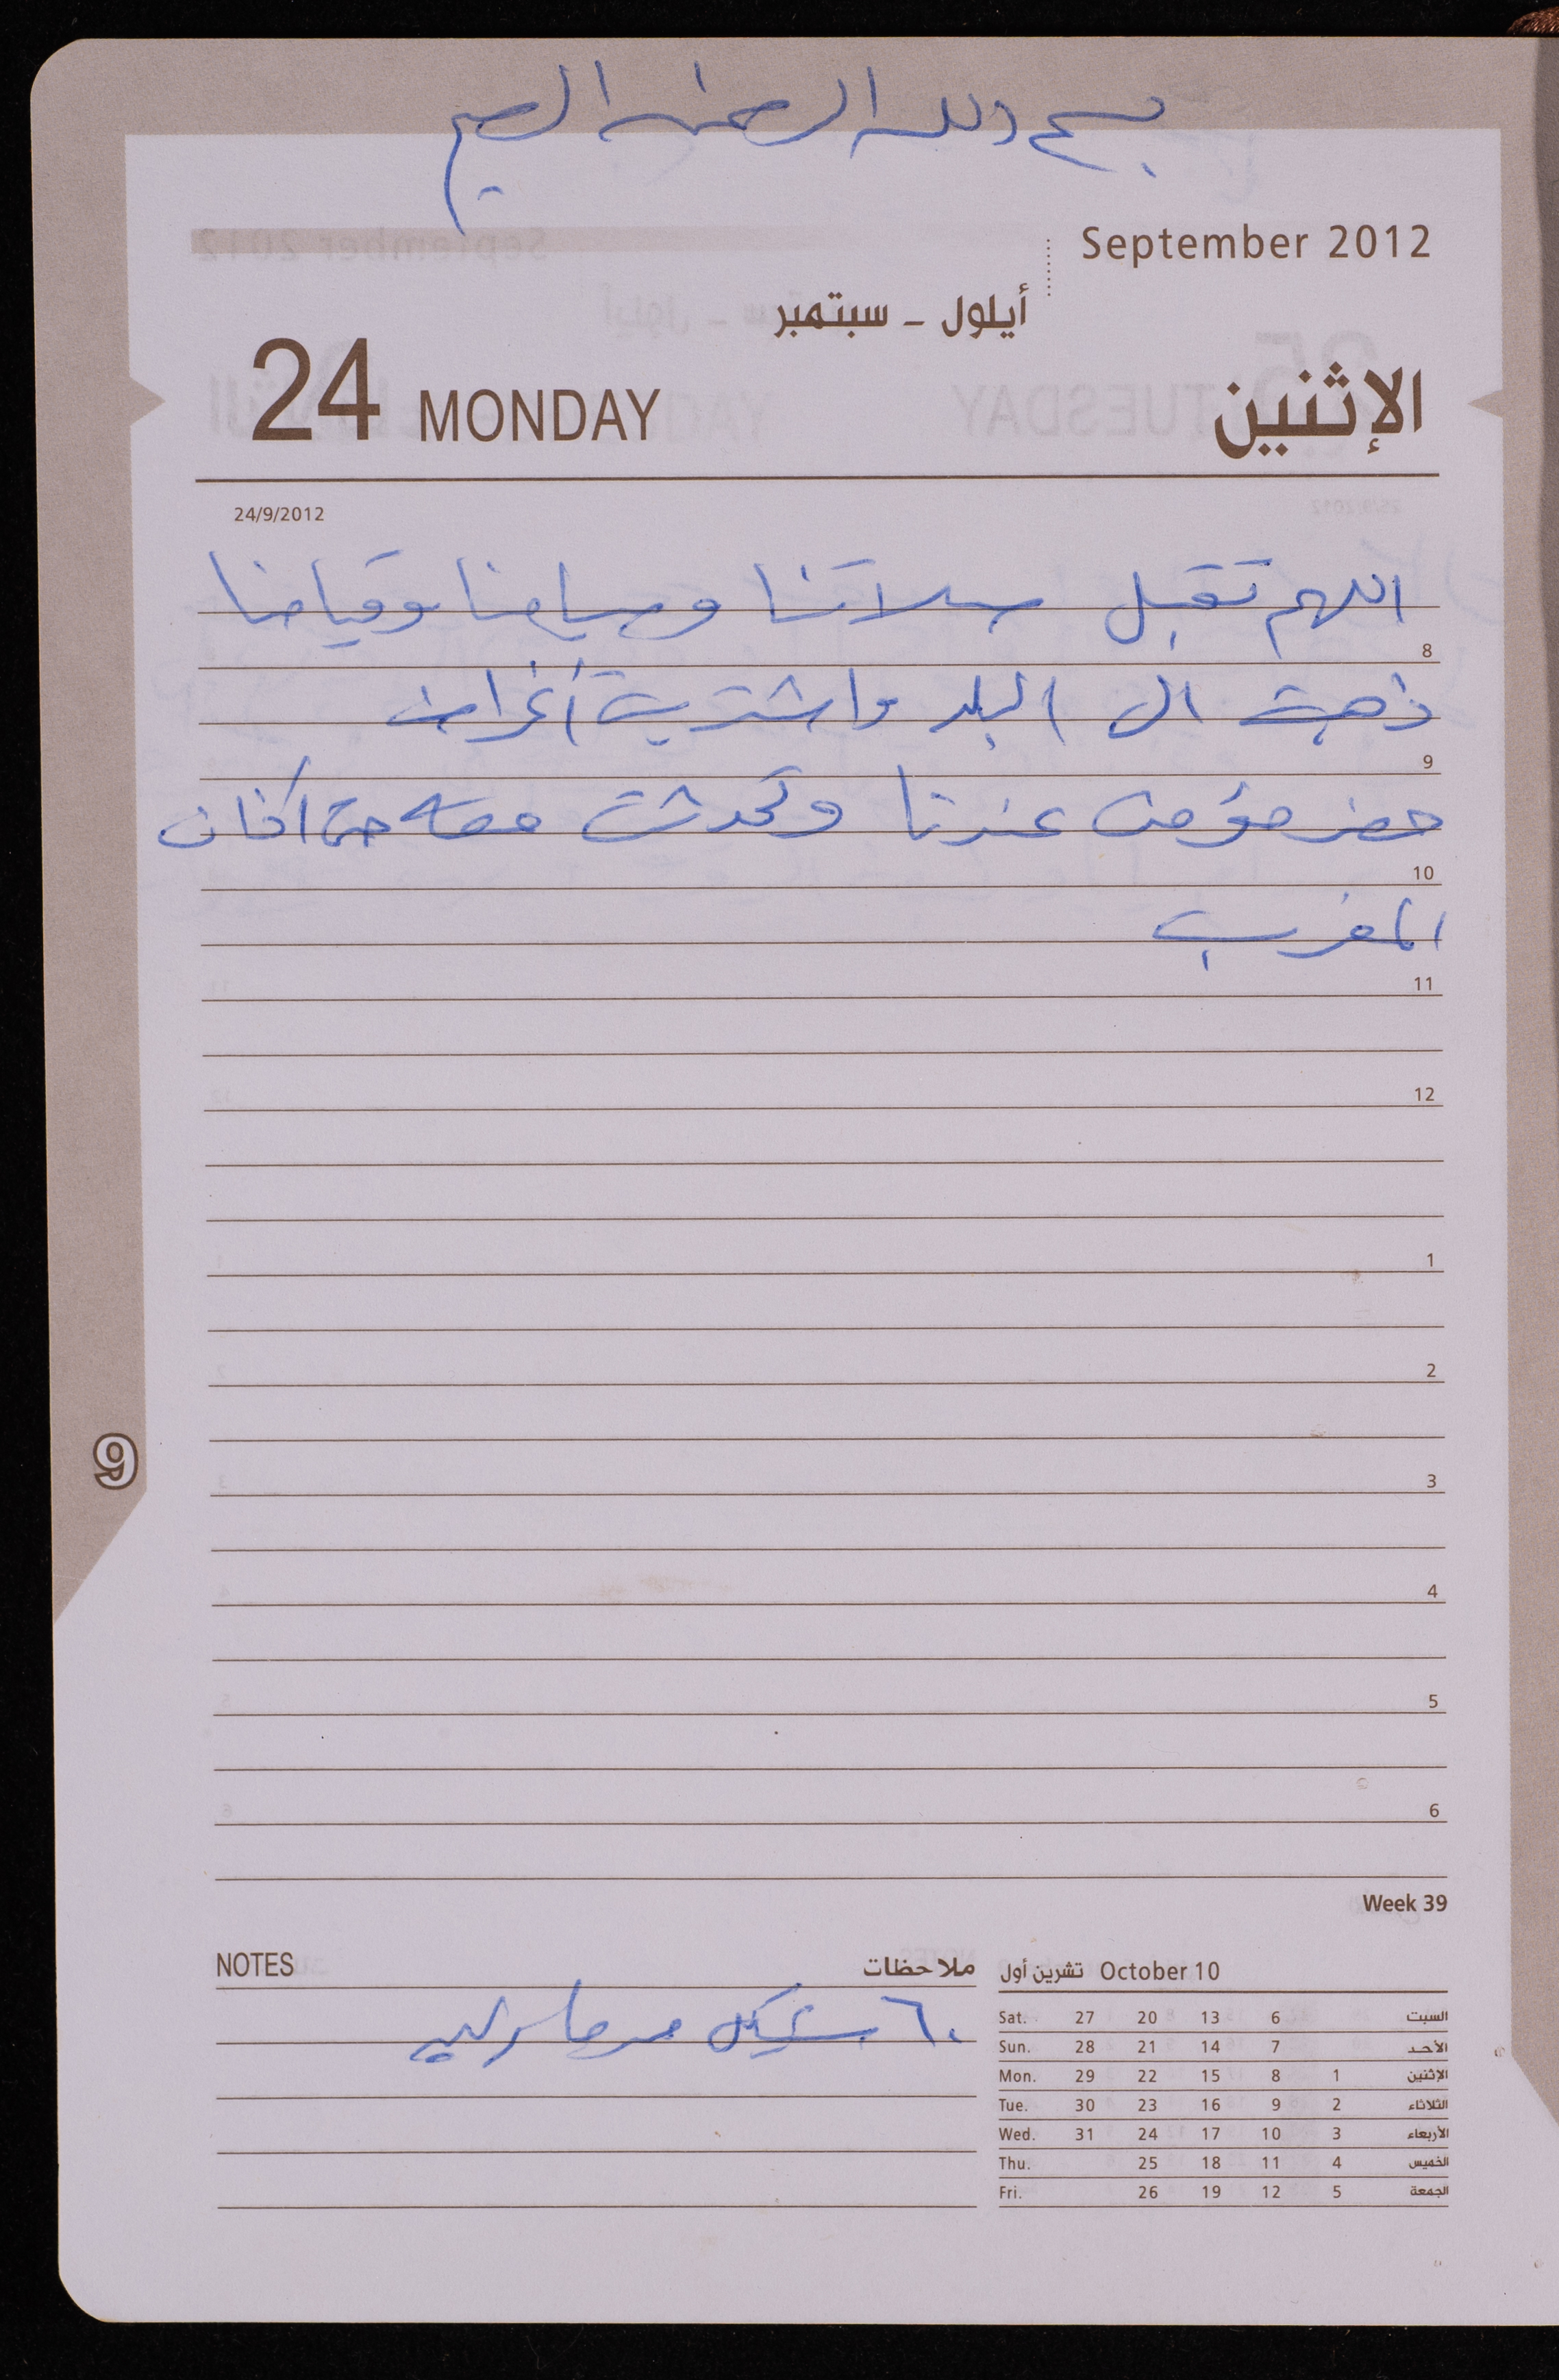 بسم الله الرحمن الرحيم
September 2012
أيلول - سبتمبر
24 MONDAY الإثنين
24/9/2012
اللهم تقبل صلاتنا وصيامنا وقيامنا
8
ذهبت الى البلد واشتريت أغراض
9
حضر مؤمن عندنا وتحدثت معه حتى اذان
10
المغرب
11
12
1
2
3
4
5
6
9
Week 39
NOTES ملاحظات
٦٠ شيكل من
October 10 تشرين أول
Sat. 27 20 13 6 السبت
Sun. 28 21 14 7 الأحد
Mon. 29 22 15 8 1 الإثنين
Tue. 30 23 16 9 2 الثلاثاء
Wed. 31 24 17 10 3 الأربعاء
Thu. 25 18 11 4 الخميس
Fri. 26 19 12 5 الجمعة